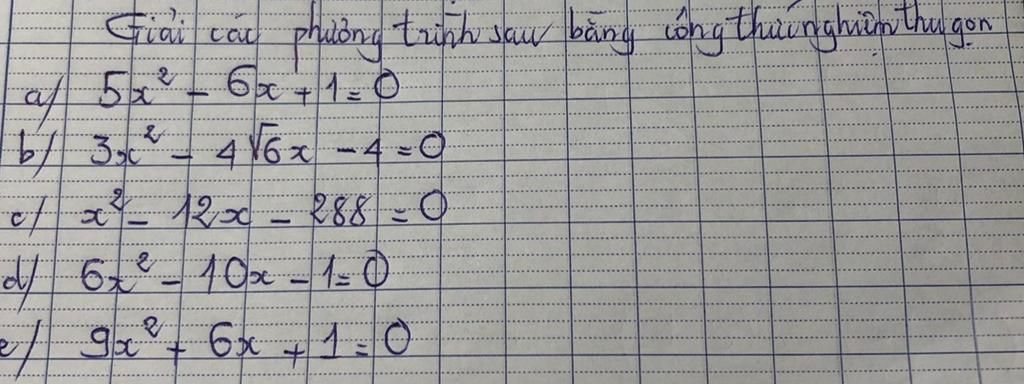 Giải các phương trình sau bằng công thức nghiệm thu gọn
a/ 5x² - 6x + 1 = 0
b/ 3x² - 4√6x - 4 = 0
c/ x² - 12x - 288 = 0
d/ 6x² - 10x - 1 = 0
e/ 9x² + 6x + 1 = 0